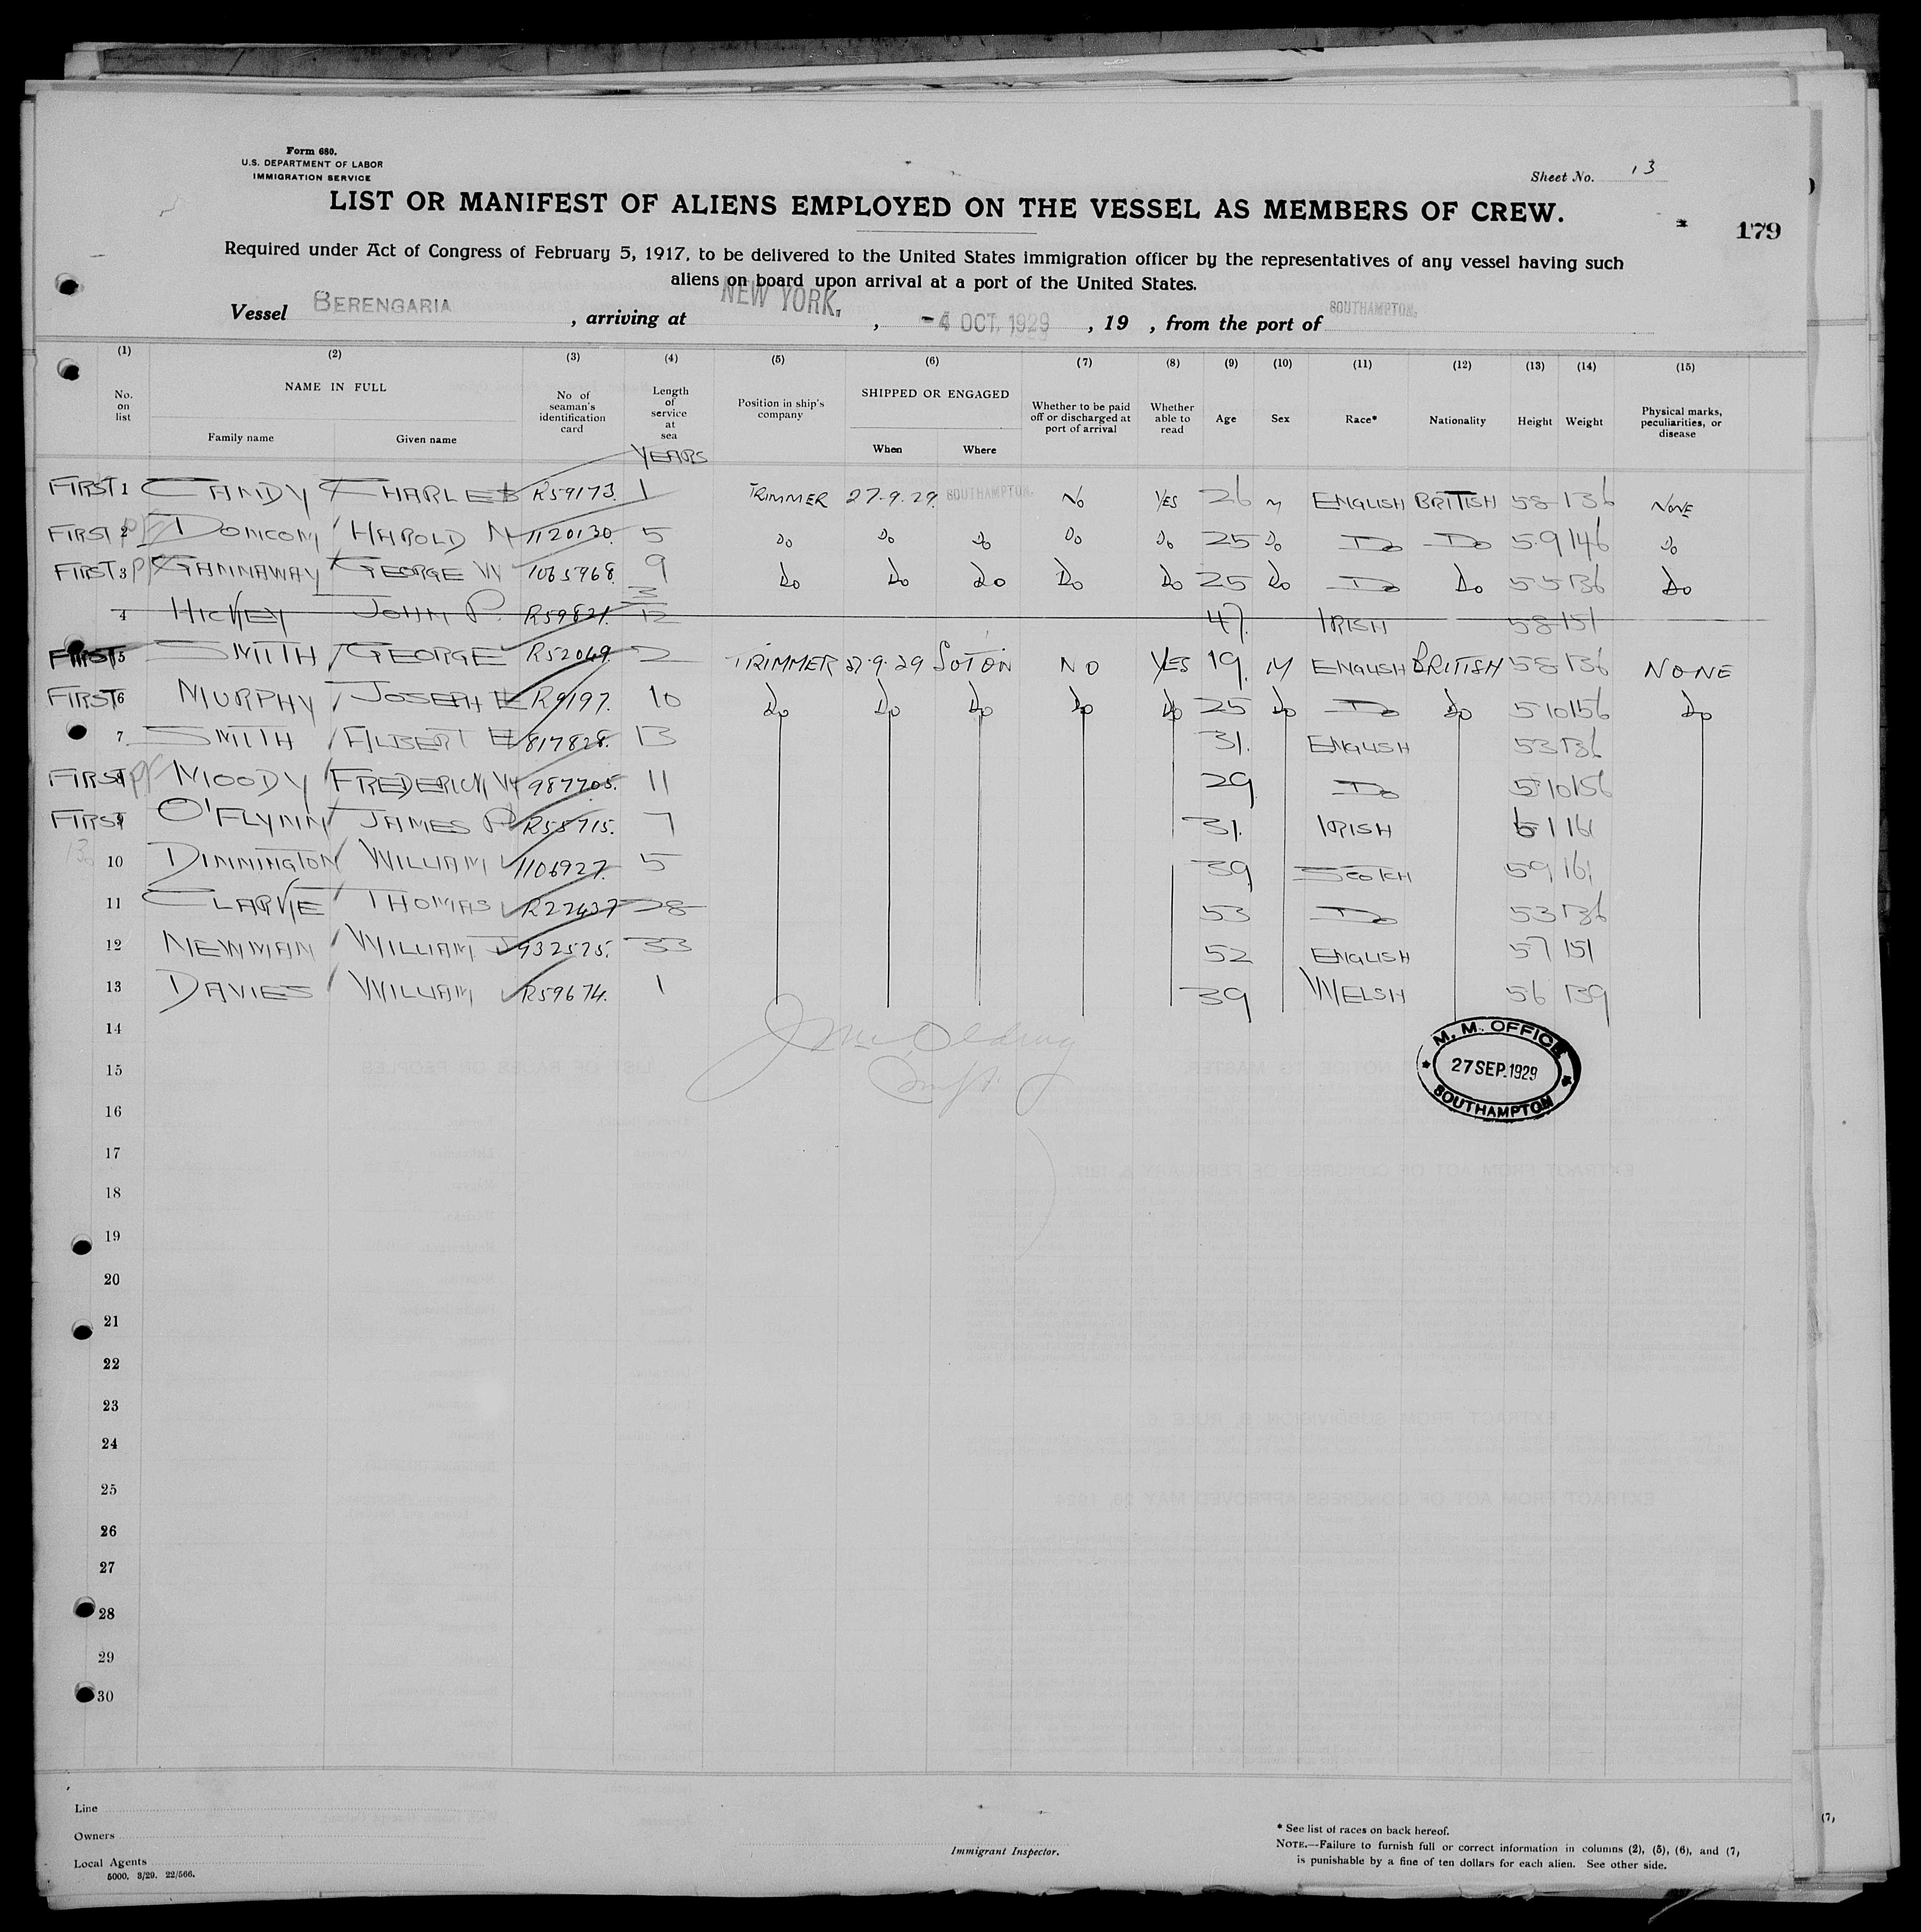 Form 680.
U.S. DEPARTMENT OF LABOR
IMMIGRATION SERVICE
Sheet No. 13
LIST OR MANIFEST OF ALIENS EMPLOYED ON THE VESSEL AS MEMBERS OF CREW.
179
Required under Act of Congress of February 5, 1917, to be delivered to the United States immigration officer by the representatives of any vessel having such
aliens on board upon arrival at a port of the United States.
Vessel BERENGARIA, arriving at NEW YORK, , -4 OCT. 1929, 19 , from the port of SOUTHAMPTON.
(1) (2) (3) (4) (5) (6) (7) (8) (9) (10) (11) (12) (13) (14) (15)
No. on list NAME IN FULL Family name Given name No of seaman's identification card Length of service at sea YEARS Position in ship's company SHIPPED OR ENGAGED When Where Whether to be paid off or discharged at port of arrival Whether able to read Age Sex Race* Nationality Height Weight Physical marks, peculiarities, or disease
FIRST 1 CANDY CHARLES R59173. 1 TRIMMER 27-9-29. SOUTHAMPTON. No YES 26 M ENGLISH BRITISH 58 136 NONE
FIRST 2 DONCOM HAROLD N 1120130. 5 Do Do Do Do Do 25 Do Do Do 5.9 146 Do
FIRST 3 GANNAWAY GEORGE W 1065968. 9 Do Do Do Do Do 25 Do Do Do 55 136 Do
4 HICKEY JOHN P. R59821. 3/12 47. IRISH 58 151
FIRST 5 SMITH GEORGE R52049. 2 TRIMMER 27-9-29 SOTON NO YES 19. M ENGLISH BRITISH 58 136 NONE
FIRST 6 MURPHY JOSEPH E R9197. 10 Do Do Do Do Do 25 Do Do Do 510 156 Do
7 SMITH ALBERT E 817828. 13 31. ENGLISH 53 136
FIRST 8 MOODY FREDERICK W 987705. 11 29 Do 510 156
FIRST 9 O'FLYNN JAMES P R55715. 7 31. IRISH 61 161
10 DINNINGTON WILLIAM 1106927. 5 39 SCOTCH 59 161
11 CLARKE THOMAS R22437 28 53 Do 53 136
12 NEWMAN WILLIAM J 932575. 33 52 ENGLISH 57 151
13 DAVIES WILLIAM R59674. 1 39 WELSH 56 139
14
15
16
17
18
19
20
21
22
23
24
25
26
27
28
29
30
M. M. OFFICE
27 SEP. 1929
SOUTHAMPTON
Line
Owners
Local Agents
5000. 3/29. 22/566.
Immigrant Inspector.
* See list of races on back hereof.
NOTE.—Failure to furnish full or correct information in columns (2), (5), (6), and (7)
is punishable by a fine of ten dollars for each alien. See other side.
(7,